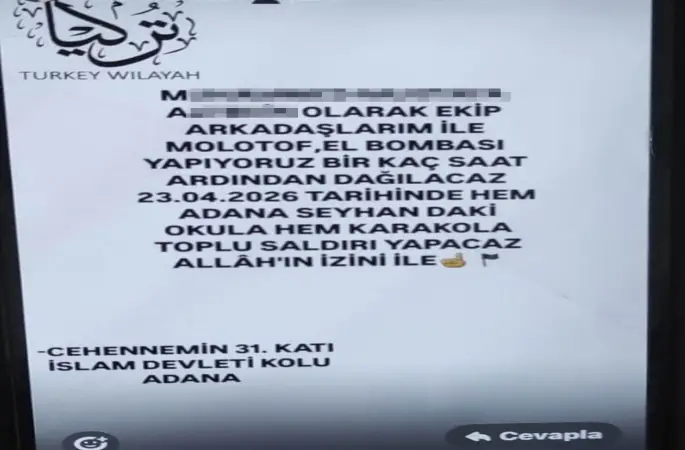 تركيا
TURKEY WILAYAH
OLARAK EKİP
ARKADAŞLARIM İLE
MOLOTOF,EL BOMBASI
YAPIYORUZ BİR KAÇ SAAT
ARDINDAN DAĞILACAZ
23.04.2026 TARİHİNDE HEM
ADANA SEYHAN DAKİ
OKULA HEM KARAKOLA
TOPLU SALDIRI YAPACAZ
ALLÂH'IN İZİNİ İLE☝️🏴
-CEHENNEMİN 31. KATI
İSLAM DEVLETİ KOLU
ADANA
Cevapla